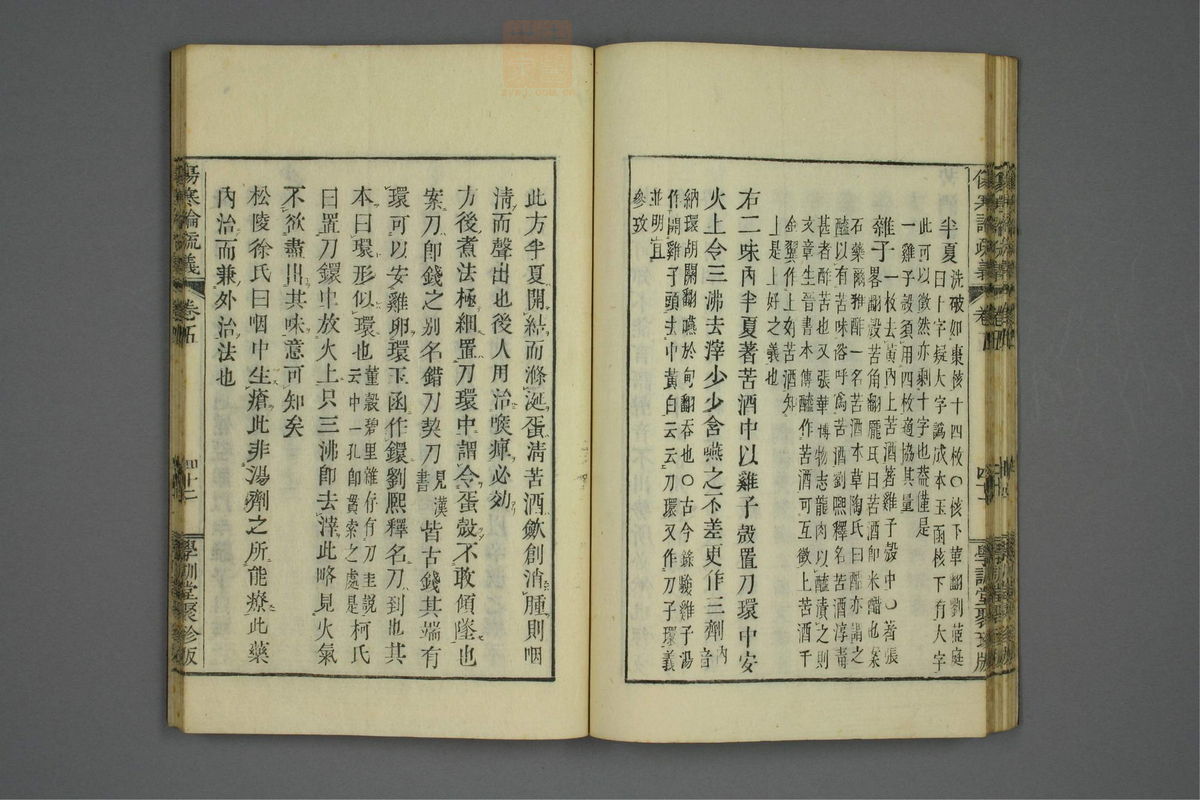 半夏洗破如棗核十四枚○核下華翻劉茝庭
曰十字擬大字譌成本玉函核下有大字
此可以徵然亦剩十字也蓋僅是
一雞子殼須用四枚適協其量
雞子一枚去黃內上苦酒著雞子殼中○著張
畧翻殼苦角翻龐氏曰苦酒卽米醋也案
石藥爾雅酢一名苦酒本草陶氏曰醋亦謂之
醯以有苦味俗呼爲苦酒劉熙釋名苦酒淳毒
甚者酢苦也又張華博物志龍肉以醯漬之則
文章生晉書本傳醯作苦酒可互徵上苦酒千
金翼作上好苦酒知
上是上好之義也
右二味內半夏著苦酒中以雞子殼置刀環中安
火上令三沸去滓少少含嚥之不差更作三劑內音
納環胡關翻嚥於甸翻吞也○古今錄驗雞子湯
作開雞子頭去中黃白云云刀環又作刀子環義
並明宜
參攷
傷寒論疏義
卷五
四十二
學訓堂聚珍版
此方半夏開結而滌涎蛋清苦酒斂創消腫則咽
清而聲出也後人用治喉痺必効
方後煮法極細置刀環中謂令蛋殼不敢傾墜也
案刀卽錢之別名錯刀契刀見漢書皆古錢其端有
環可以安雞卵環玉函作鐶劉熙釋名刀到也其
本曰環形似環也董穀碧里雜存有刀圭說柯氏
云中一孔卽貫索之處是
曰置刀鐶中放火上只三沸卽去滓此略見火氣
不欲盡出其味意可知矣
松陵徐氏曰咽中生瘡此非湯劑之所能療此藥
內治而兼外治法也
傷寒論疏義
卷五
四十二
學訓堂聚珍版